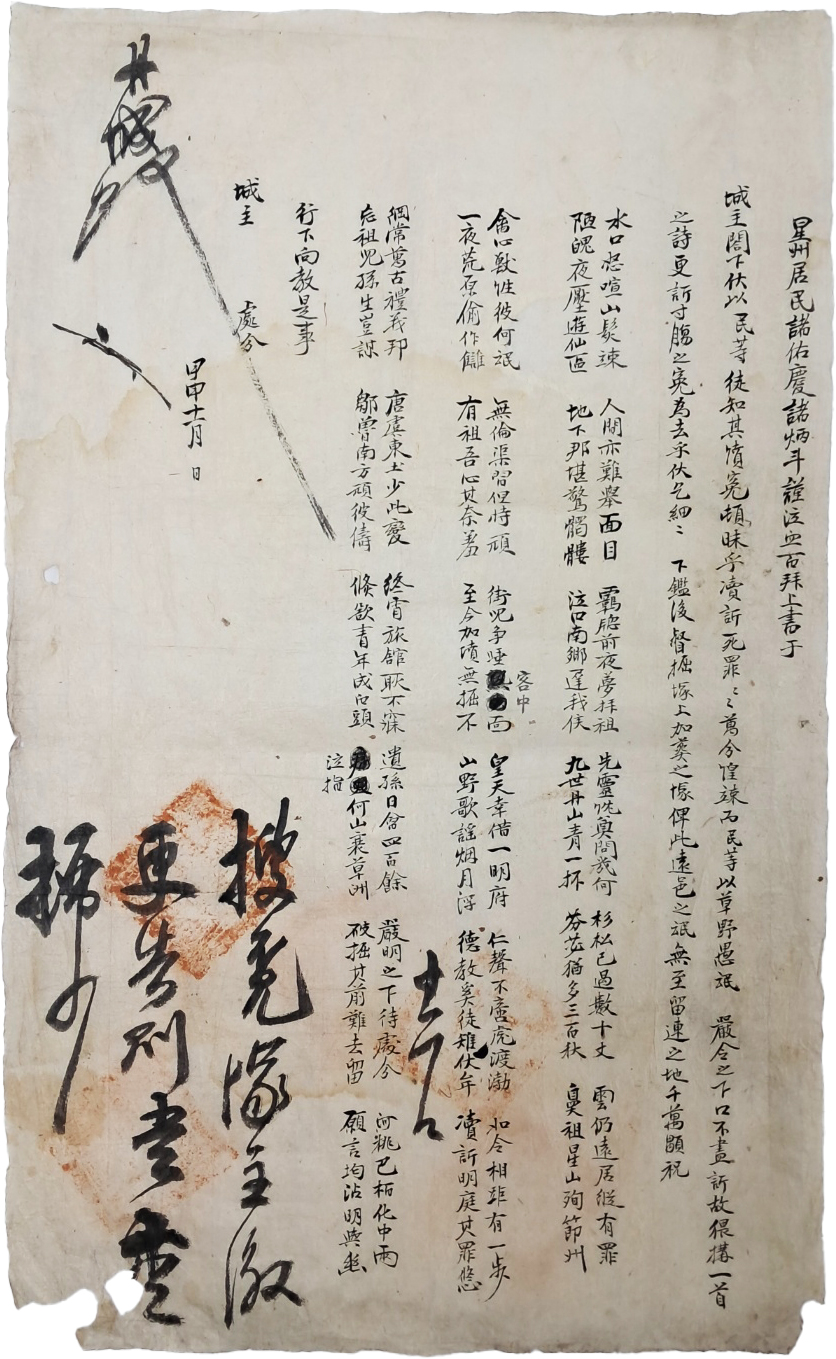 星州居民諸佑慶諸炳斗謹泣血百拜上書于
城主閤下伏以民等徒知其憤寃頓昧乎瀆訴死罪〻〻萬分惶竦而民等以草野愚氓 嚴令之下口不盡訴故猥搆一首
之詩更訴寸膓之寃為去乎伏乞細〻 下鑑後督掘塚上加葬之塚俾此遠邑之氓無至留連之地千萬顒祝
水口怒喧山髮竦 人間亦難舉面目 羈牕前夜夢拜祖 先靈怳奐問幾何 杉松已過數十丈 雲仍遠居縱有罪
陋魄夜壓遊仙區 地下那堪驚髑髏 泣口南鄉達我侯 九世丹山青一抔 芬苾猶多三百秋 臭祖星山殉節州
禽心獸性彼何氓 無倫渠習但恃頑 街兒爭唾客中面 皇天幸借一明府 仁聲不啻虎渡渤 如令相距有一步
一夜荒原偷作讎 有祖吾心其奈羞 至今加憤無掘不 山野歌謠烟月浮 德教奚徒雉伏年 瀆訴明庭其罪悠
綱常萬古禮義邦 唐虞東土少此變 終宵旅舘耿不寐 遺孫日會四百餘 嚴明之下待處分 河桃巴栢化中雨
忘祖兒孫生豈謀 鄒魯南方頑彼儔 倏欲青年成白頭 泣指何山裹草洲 破掘其前難去留 願言均沾明與幽
行下向教是事
城主 處分
甲申十一月 日
十一
搜覓塚主後
更告則